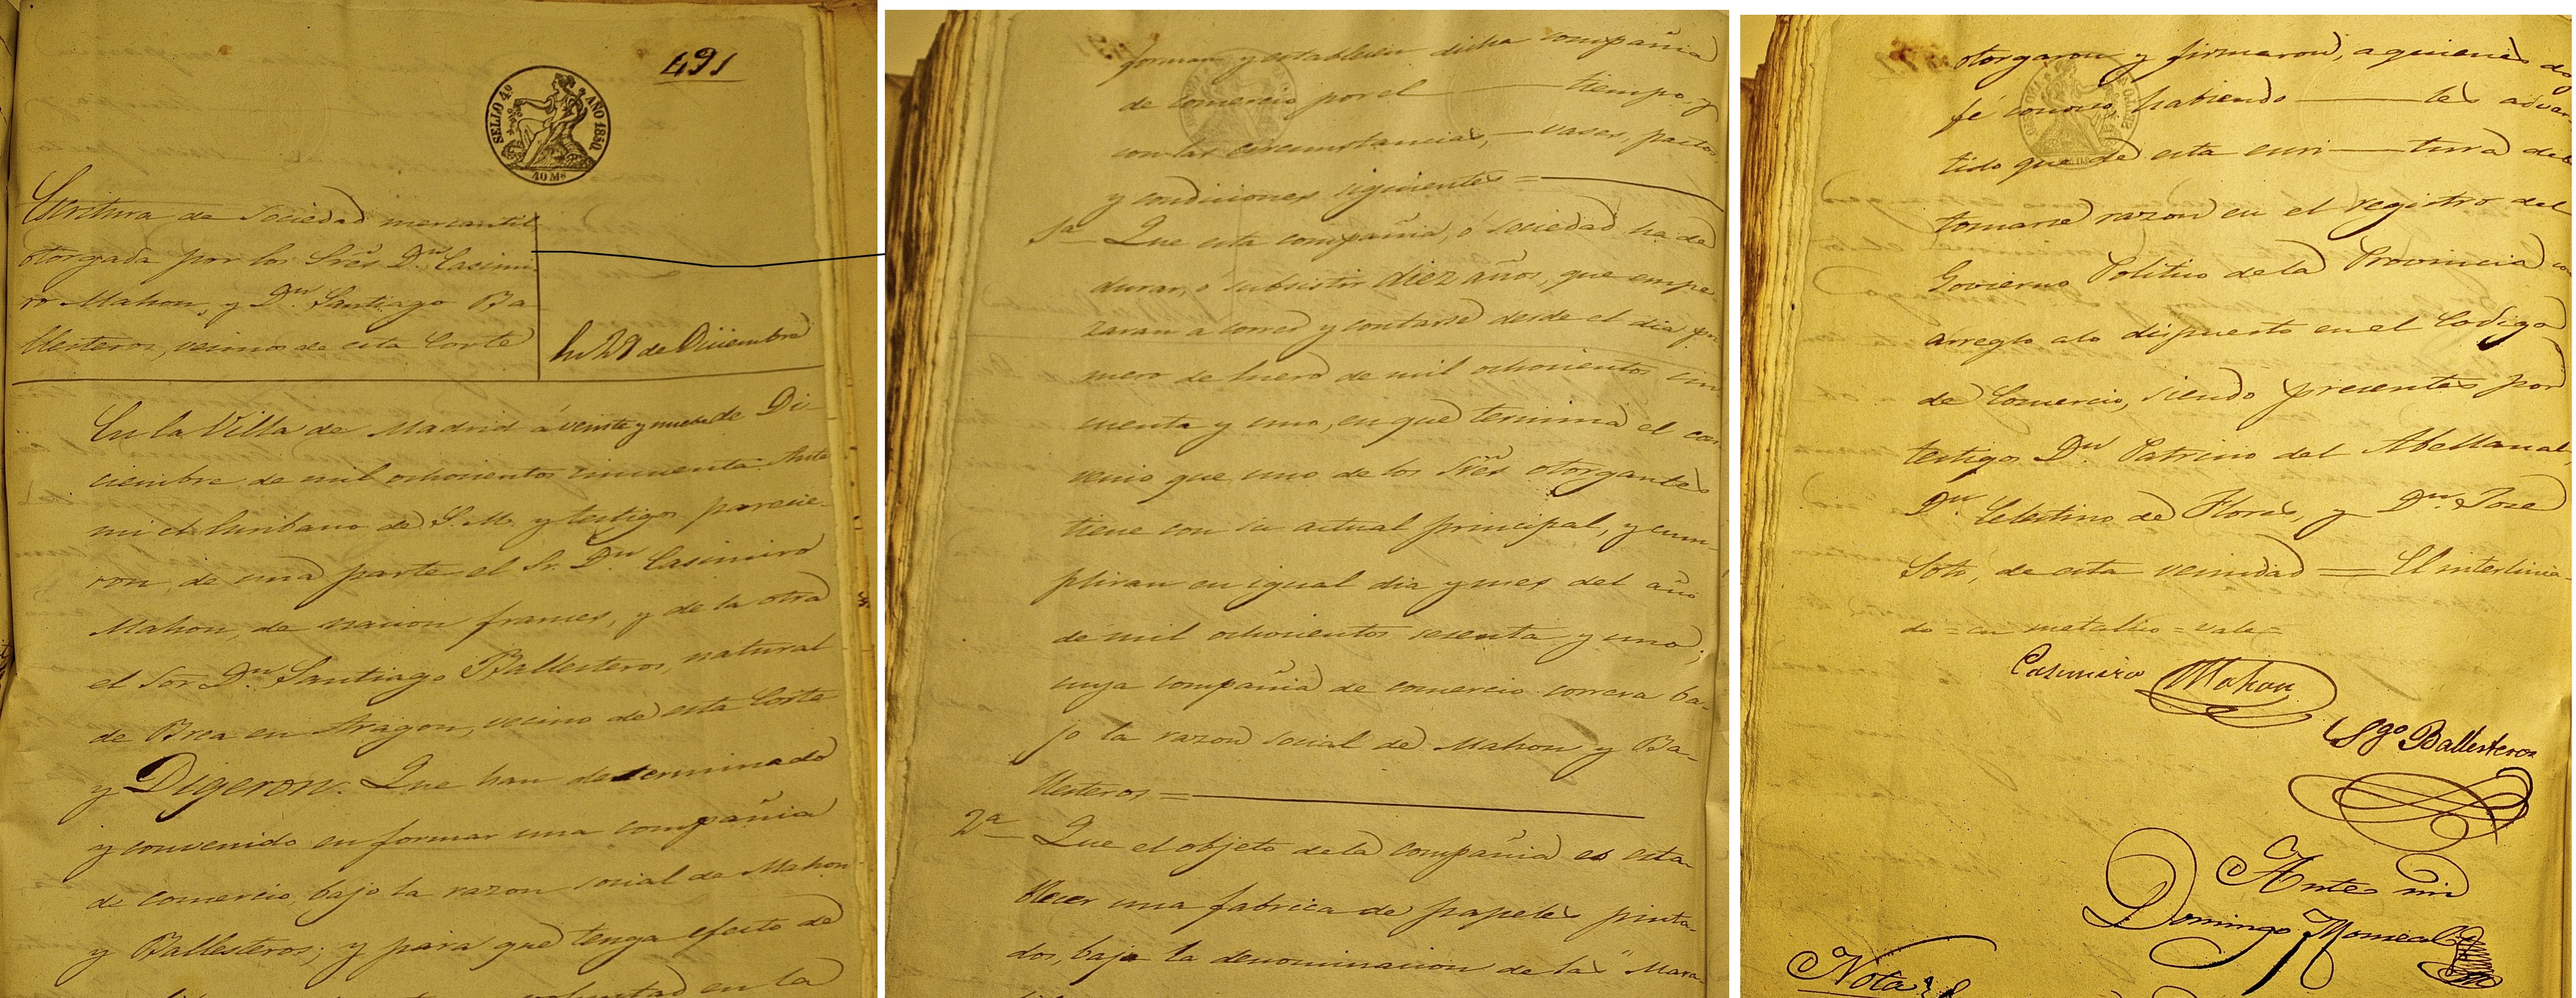 491
SELLO 4º AÑO 1850.
40 Ms
Escritura de Sociedad mercantil
otorgada por los Sres Dn Casimi-
ro Mahon, y Dn Santiago Ba
llesteros, vecinos de esta Corte
En 29 de Diciembre
En la Villa de Madrid á veinte y nueve de Di-
ciembre de mil ochocientos cincuenta. Ante
mi el Escribano de S. M. y testigos parecie-
ron, de una parte el Sr. Dn Casimiro
Mahon, de nacion frances, y de la otra
el Sor Dn Santiago Ballesteros, natural
de Brea en Aragon, vecino de esta Corte
y Digeron. Que han determinado
y convenido en formar una compañia
de comercio, bajo la razon social de Mahon
y Ballesteros; y para que tenga efecto de
voluntad en la
forman y establecen dicha compañia
de comercio por el tiempo, y
con las circunstancias, vases, pactos
y condiciones siguientes =
1a Que esta compañia, ó sociedad ha de
durar, ó subsistir diez años, que empe
zaran a correr y contarse desde el dia pri
mero de Enero de mil ochocientos cin
cuenta y uno, en que termina el con
venio que uno de los Sres otorgantes
tiene con su actual principal, y cum-
pliran en igual dia y mes del año
de mil ochocientos sesenta y uno;
cuya compañia de comercio correra ba-
jo la razon social de Mahon y Ba-
llesteros =
2a Que el objeto de la compañia es esta
blecer una fabrica de papeles pinta-
dos, bajo la denominacion de las "Mara
otorgaron y firmaron, a quienes doy
fé conozco, habiendo les adver
tido que de esta escri tura debe
tomarse razon en el registro del
Govierno Politico de la Provincia con
arreglo alo dispuesto en el Codigo
de Comercio, siendo presentes por
testigos Dn Patricio del Abellanal,
Dn Celestino de Flores, y Dn Jose
Soto, de esta vecindad = El interlinia
do = en metalico = vale =
Casimiro Mahon
Sgo Ballesteros
Antes mi
Domingo Monreal
Nota